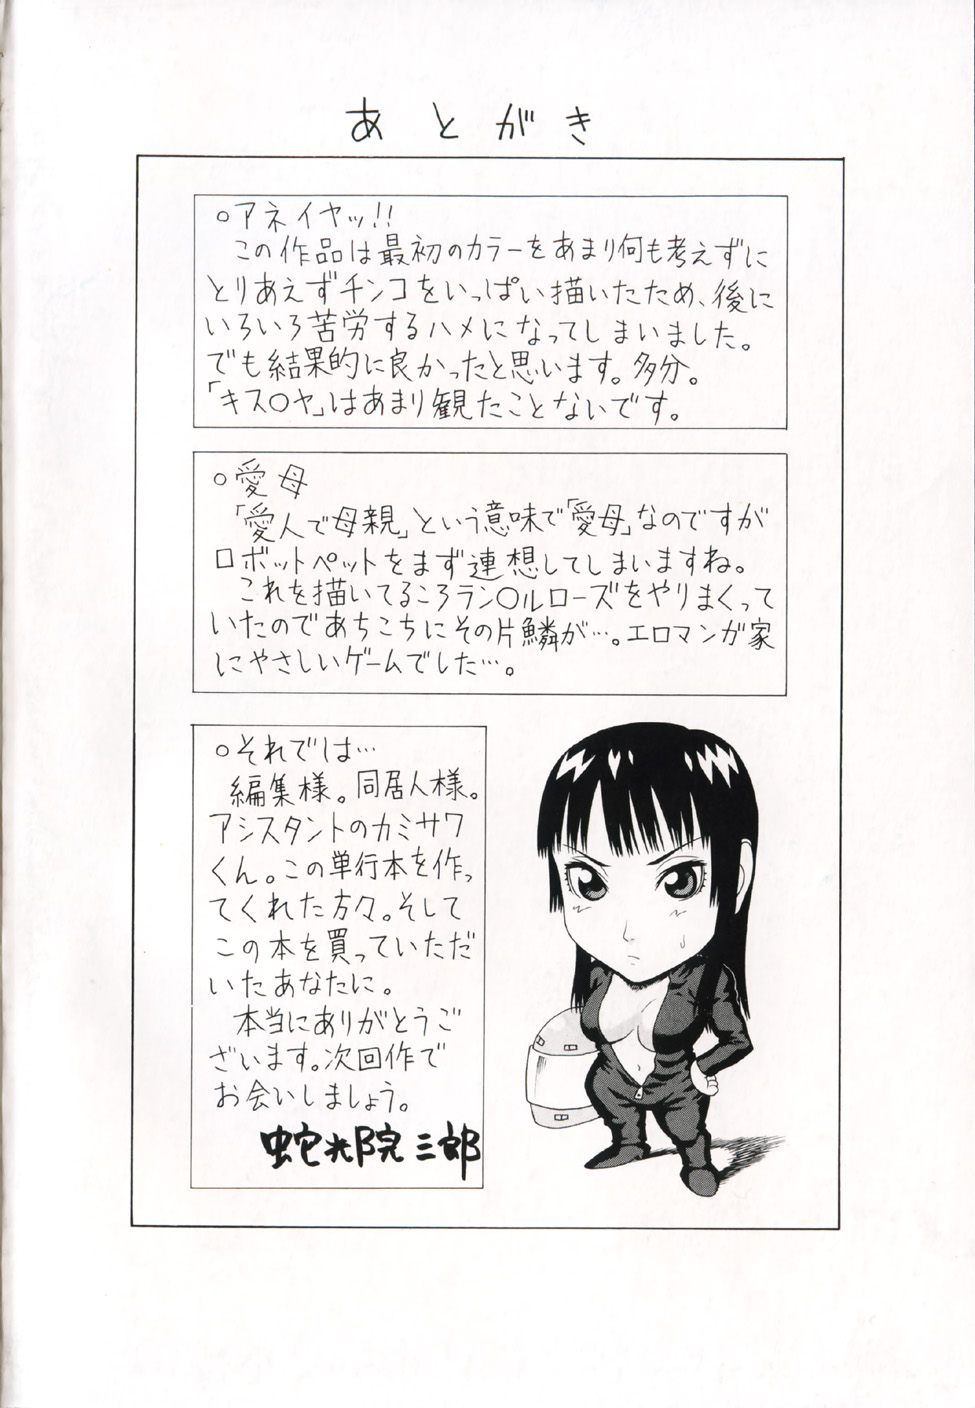 あとがき
○アネイヤッ!!
この作品は最初のカラーをあまり何も考えずに
とりあえずチンコをいっぱい描いたため、後に
いろいろ苦労するハメになってしまいました。
でも結果的に良かったと思います。多分。
「キス○ヤ」はあまり観たことないです。
○愛母
「愛人で母親」という意味で「愛母」なのですが
ロボットペットをまず連想してしまいますね。
これを描いてるころラン○ルローズをやりまくって
いたのであちこちにその片鱗が…。エロマンガ家
にやさしいゲームでした…。
○それでは…
編集様。同居人様。
アシスタントのカミサワ
くん。この単行本を作っ
てくれた方々。そして
この本を買っていただ
いたあなたに。
本当にありがとうご
ざいます。次回作で
お会いしましょう。
蛇光院三郎